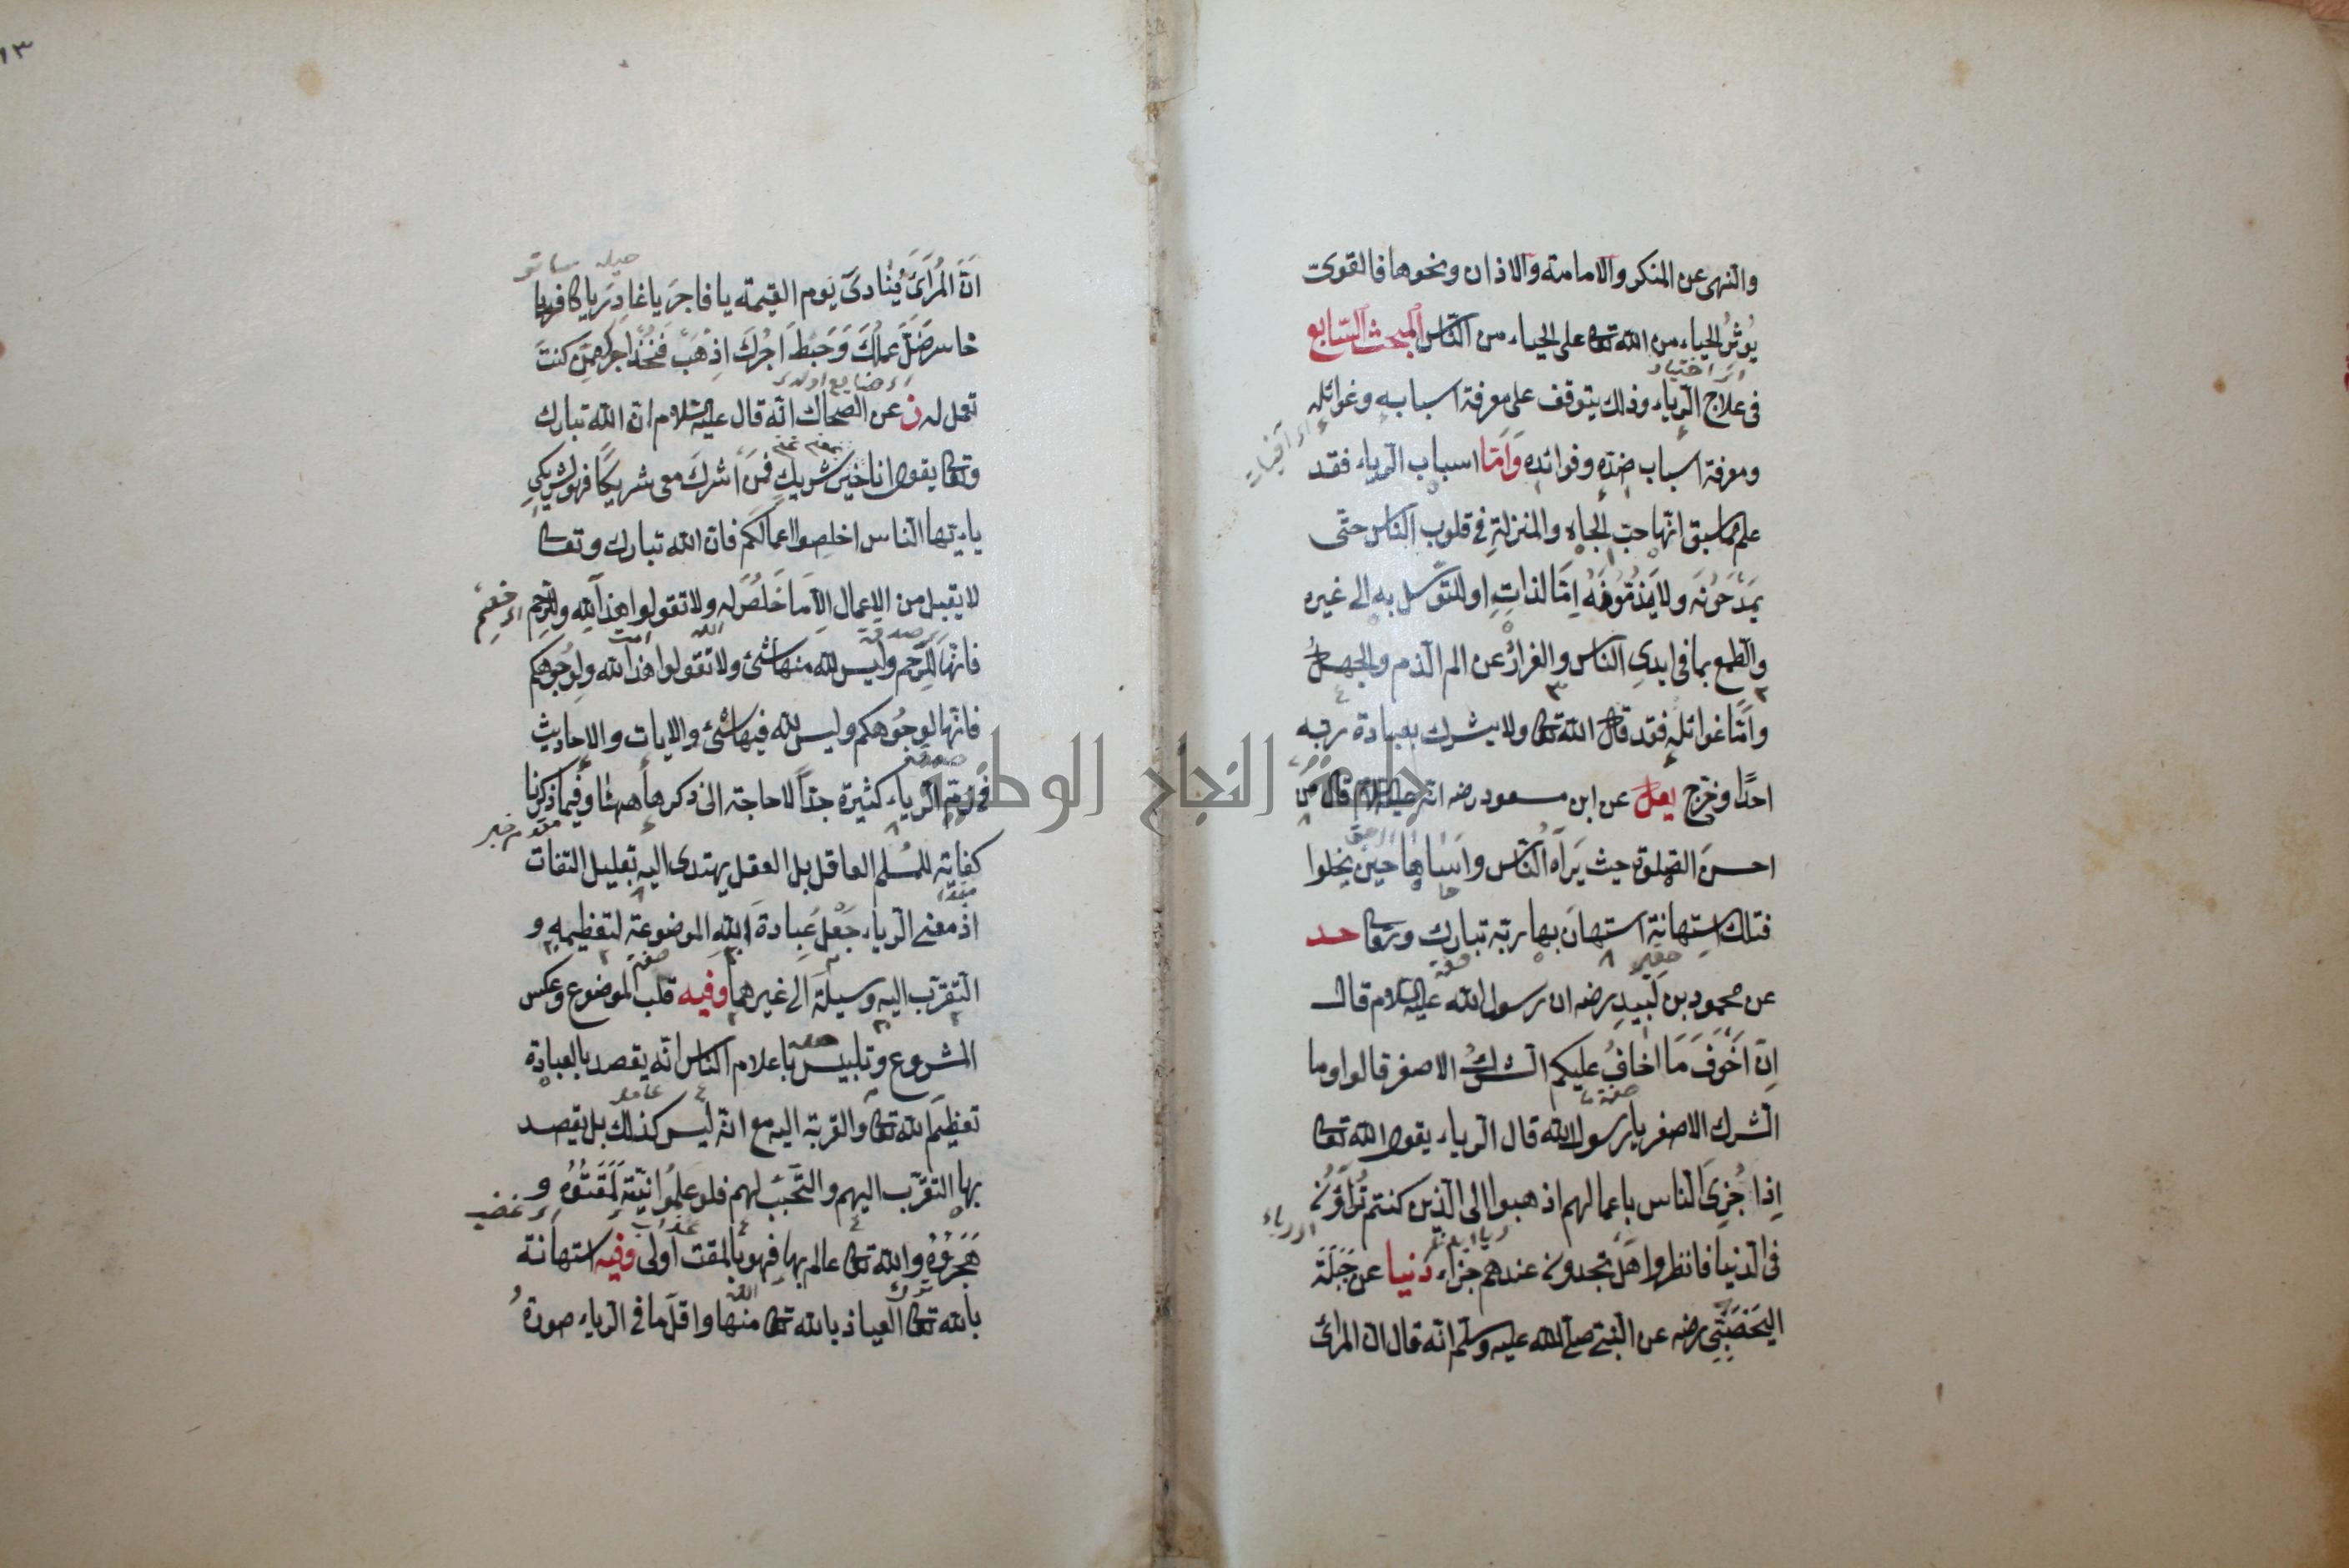 والنهى عن المنكر والامامة والاذان ونحوها فالقوى
يُوثرُ الحياء من الله تعالى على الحياء من الناس المبحث السابع
فى علاج الرياء وذلك يتوقف على معرفة اسبابه وغوائله
ومعرفة اسباب ضده وفوائده وَاَمّا اسباب الرياء فقد
علم مما سبق انها حب الجاه والمنزلة فى قلوب الناس حتى
يَمدَحُونَه ولا يَذمّونَهُ اِمّا لذاتِهِ او للتوسّل به الى غيره
والطمع بما فى ايدى الناس والفرارُ عن الم الذم والجهلُ
وامّا غوائله فقد قال الله تعالى ولا يشرك بعبادة ربه
احدًا وخرّج يعلى عن ابن مسعود رضه انه عليه السلام قال مَن
احسنَ الصلوة حيث يَرَاهُ النّاسُ واَسَاءها حِينَ يخلوا
فتلك استهانة استهانَ بها ربّه تبارك وتعالى حد
عن محمود بن لَبيدٍ رضه ان رسول الله عليه السلام قال
اِنّ اَخْوَفَ مَا اخافُ عليكم الشركُ الاصغر قالوا وما
الشرك الاصغر يا رسول الله قال الرياء يقول الله تعالى
اِذا جُزِىَ النّاس باعمالهم اذهبوا الى الذين كنتم تُراؤُنَ
فى الدنيا فانظروا هَلْ تجدون عندهم جزاء دنيا عن جَبَلَةَ
اليَحْصَبِىّ رضه عن النبى صلى الله عليه وسلم انه قال ان المرائ
١٣
اَنَّ المُرَاَىَٔ يُنَادَىٰ يَوم القيمة يا فاجرَ يا غادِرَ يا كافر يا
خاسر ضَلَّ عملُكَ وَحَبِطَ اجْرُكَ اِذْهَبْ فَخُذْ اجْرَكَ مِمَّنْ كنتَ
تعمل له ن عن الضحاك انه قال عليه السلام ان الله تبارك
وتعالى يقول انا خير شريك فمَنْ اَشركَ معى شريكًا فهو لشريكى
يا ايّها الناس اخلِصوا اعمالكم فان الله تبارك وتعالى
لا يقبل من الاعمال الّا مَا خَلَصَ له ولا تقولوا هذا لله وللرّحِم
فانها للرّحم وليس لله منها شئ ولا تقولوا هذا لله ولِوُجُوهكم
فانها لوجُوهكم وليس لله فيها شئ والايات والاحاديث
فى ذم الرياء كثيرة جدًّا لا حاجة الى ذكرها ههنا وفيما ذكرنا
كفاية للمُسلم العاقل بل العقل يهتدى اليه بقليل التفات
اذ معنى الرياء جَعْلُ عِبادَةِ اللهِ الموضوعةِ لتعظيمه و
التقرّب اليه وسيلةً الى غيرهما وفيه قلب الموضوع وعكس
المشروع وتلبيس باعلام الناس انه يقصد بالعبادة
تعظيم الله تعالى والقربة اليه مع انه ليس كذلك بل يقصد
بها التقرّب اليهم والتحبّب لهم فلو علمُوا نيّتَهُ لَمَقَتُوهُ و
هَجَرُوهُ والله تعالى عالم بها فهو بالمقت اولى وفيه استهانة
بالله تعالى العياذ بالله تعالى منها واقلّ ما فى الرياء صورةُ
جامعة النجاح الوطنية